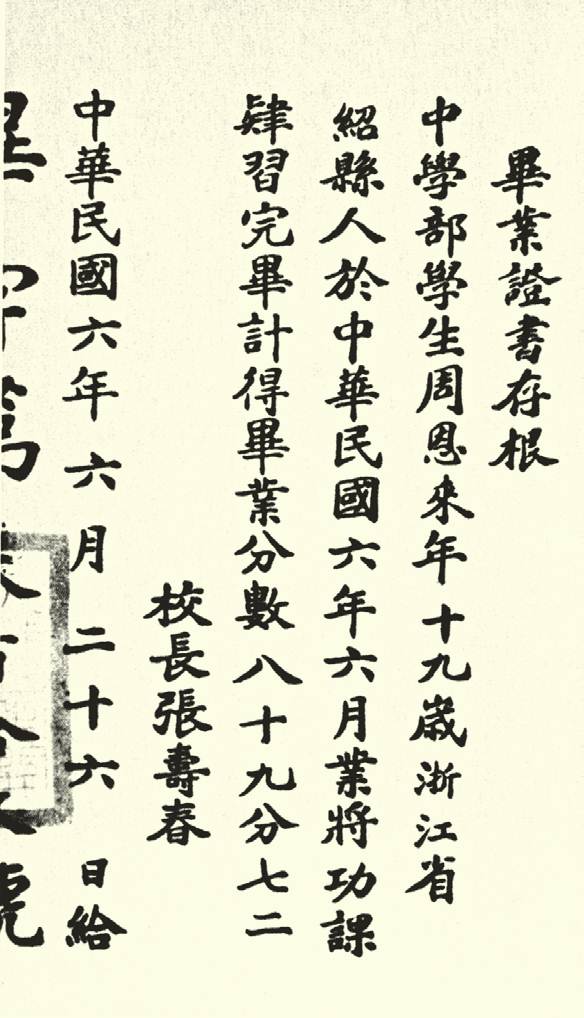 畢業證書存根
中學部學生周恩來年十九歲浙江省
紹縣人於中華民國六年六月業將功課
肄習完畢計得畢業分數八十九分七二
校長張壽春
中華民國六年六月二十六日給